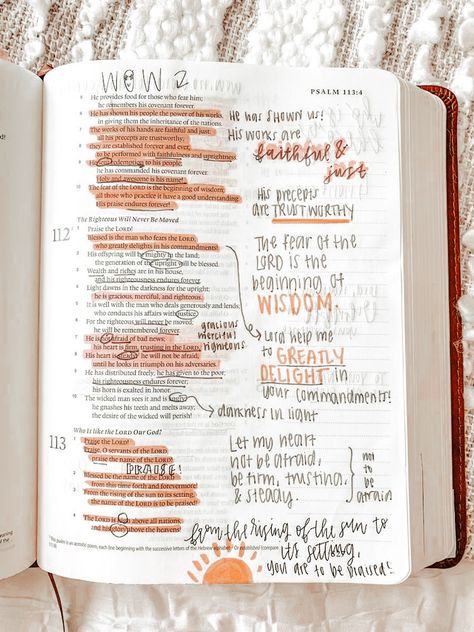 WOW!
PSALM 113:4
5 He provides food for those who fear him;
he remembers his covenant forever.
6 He has shown his people the power of his works,
in giving them the inheritance of the nations.
7 The works of his hands are faithful and just;
all his precepts are trustworthy;
8 they are established forever and ever,
to be performed with faithfulness and uprightness.
9 He sent redemption to his people;
he has commanded his covenant forever.
Holy and awesome is his name!
10 The fear of the LORD is the beginning of wisdom;
all those who practice it have a good understanding.
His praise endures forever!
The Righteous Will Never Be Moved
112
1 Praise the LORD!
Blessed is the man who fears the LORD,
who greatly delights in his commandments!
2 His offspring will be mighty in the land;
the generation of the upright will be blessed.
3 Wealth and riches are in his house,
and his righteousness endures forever.
4 Light dawns in the darkness for the upright;
he is gracious, merciful, and righteous.
5 It is well with the man who deals generously and lends,
who conducts his affairs with justice.
6 For the righteous will never be moved;
he will be remembered forever.
7 He is not afraid of bad news;
his heart is firm, trusting in the LORD.
8 His heart is steady; he will not be afraid,
until he looks in triumph on his adversaries.
9 He has distributed freely; he has given to the poor;
his righteousness endures forever;
his horn is exalted in honor.
10 The wicked man sees it and is angry;
he gnashes his teeth and melts away;
the desire of the wicked will perish!
gracious
merciful
righteous
Who Is like the LORD Our God?
113
1 Praise the LORD!
Praise, O servants of the LORD,
praise the name of the LORD!
PRAISE!
2 Blessed be the name of the LORD
from this time forth and forevermore!
3 From the rising of the sun to its setting,
the name of the LORD is to be praised!
4 The LORD is high above all nations,
and his glory above the heavens!
This psalm is an acrostic poem, each line beginning with the successive letters of the Hebrew alphabet Or established (compare
He has shown us!
His works are
faithful &
just
His precepts
are TRUSTWORTHY
The fear of the
LORD is the
beginning of
WISDOM.
Lord help me
to GREATLY
DELIGHT in
your commandments!
darkness in light
Let my heart
not be afraid,
be firm, trusting,
& steady.
not
to
be
afraid
from the rising of the sun to
its setting,
you are to be praised!